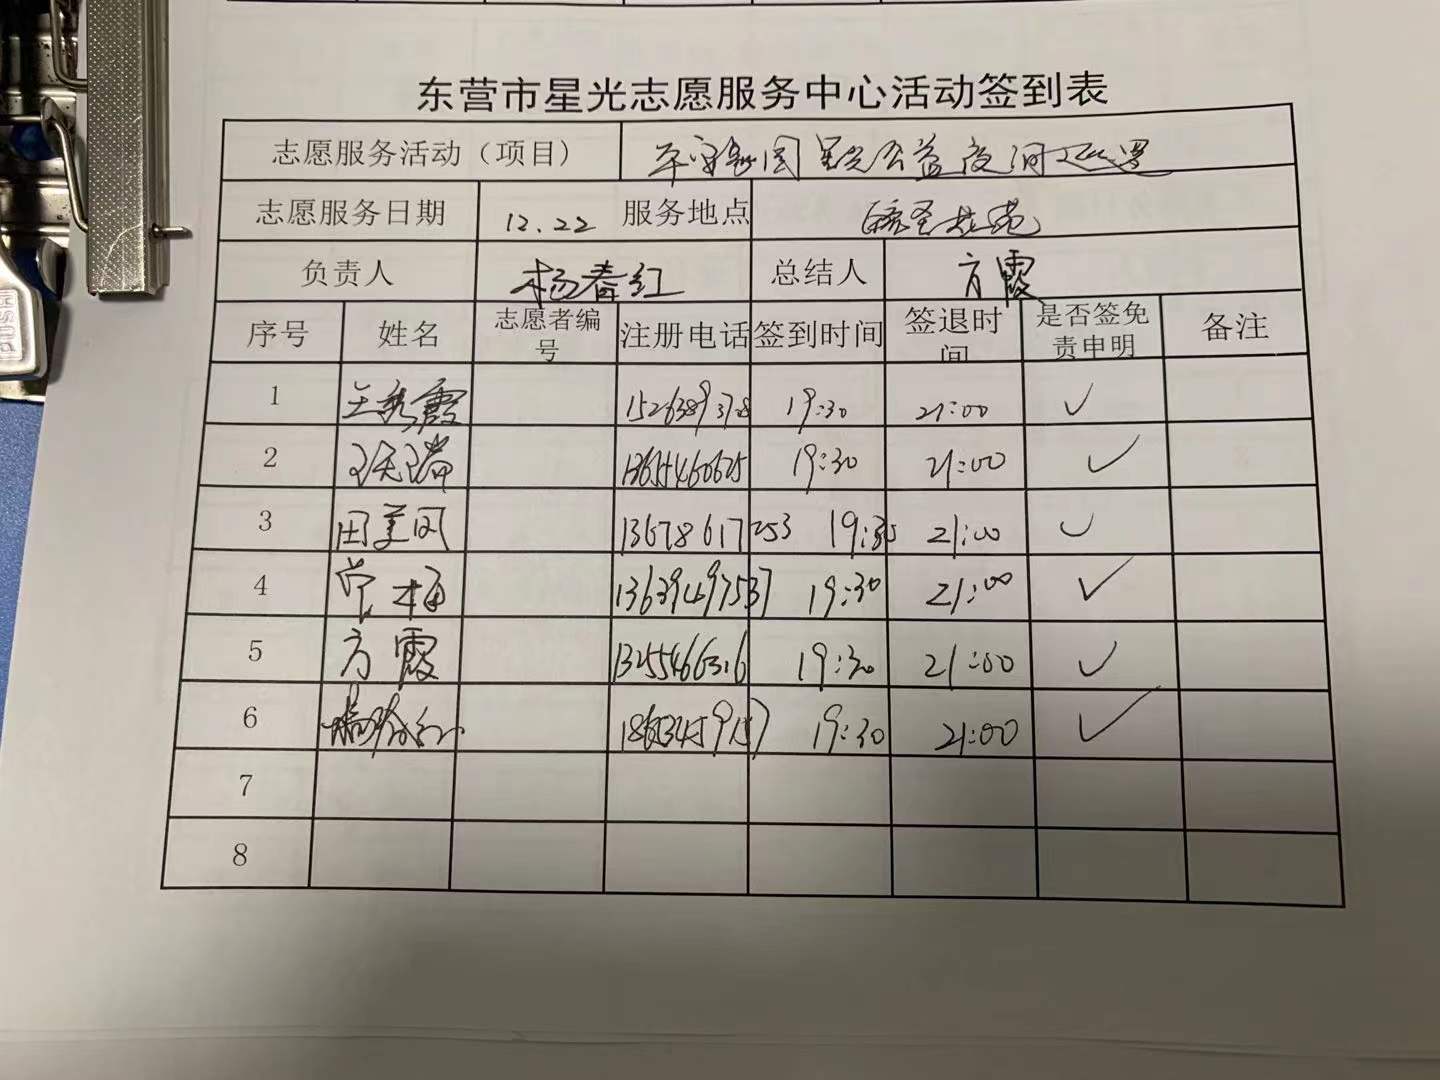 东营市星光志愿服务中心活动签到表
志愿服务活动（项目） 平安家园星光公益夜间巡逻
志愿服务日期 12.22 服务地点 花苑
负责人 杨春红 总结人 方霞
序号 姓名 志愿者编号 注册电话 签到时间 签退时间 是否签免责申明 备注
1 王秀霞 19:30 21:00 ✓
2 13655460625 19:30 21:00 ✓
3 田美凤 13678617253 19:30 21:00 ✓
4 常梅 13639497537 19:30 21:00 ✓
5 方霞 13255466316 19:30 21:00 ✓
6 19:30 21:00 ✓
7
8